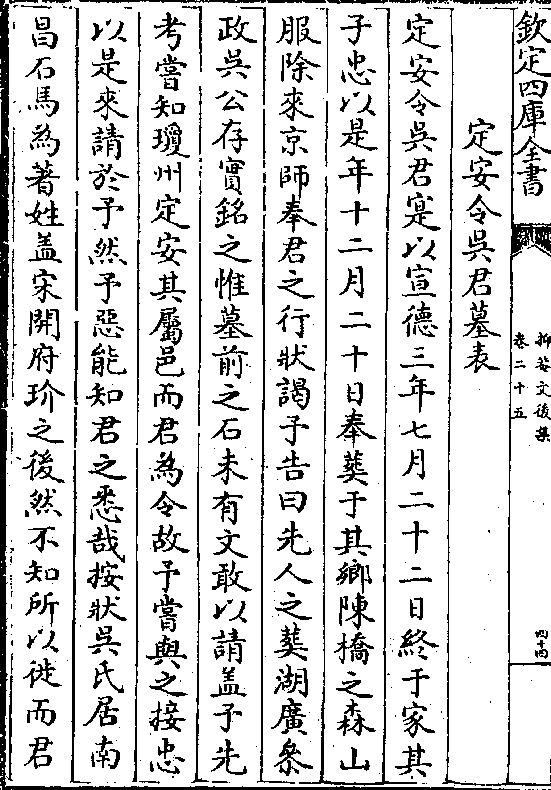 欽定四庫全書
抑菴文後集
卷二十五
四十四
定安令吳君墓表
定安令吳君寔以宣德三年七月二十二日終于家其
子忠以是年十二月二十日奉葬于其鄉陳橋之森山
服除來京師奉君之行狀謁予告曰先人之葬湖廣叅
政吳公存實銘之惟墓前之石未有文敢以請盖予先
考嘗知瓊州定安其屬邑而君為令故予嘗與之接忠
以是來請於予然予惡能知君之悉哉按狀吳氏居南
昌石馬為著姓盖宋開府玠之後然不知所以徙而君